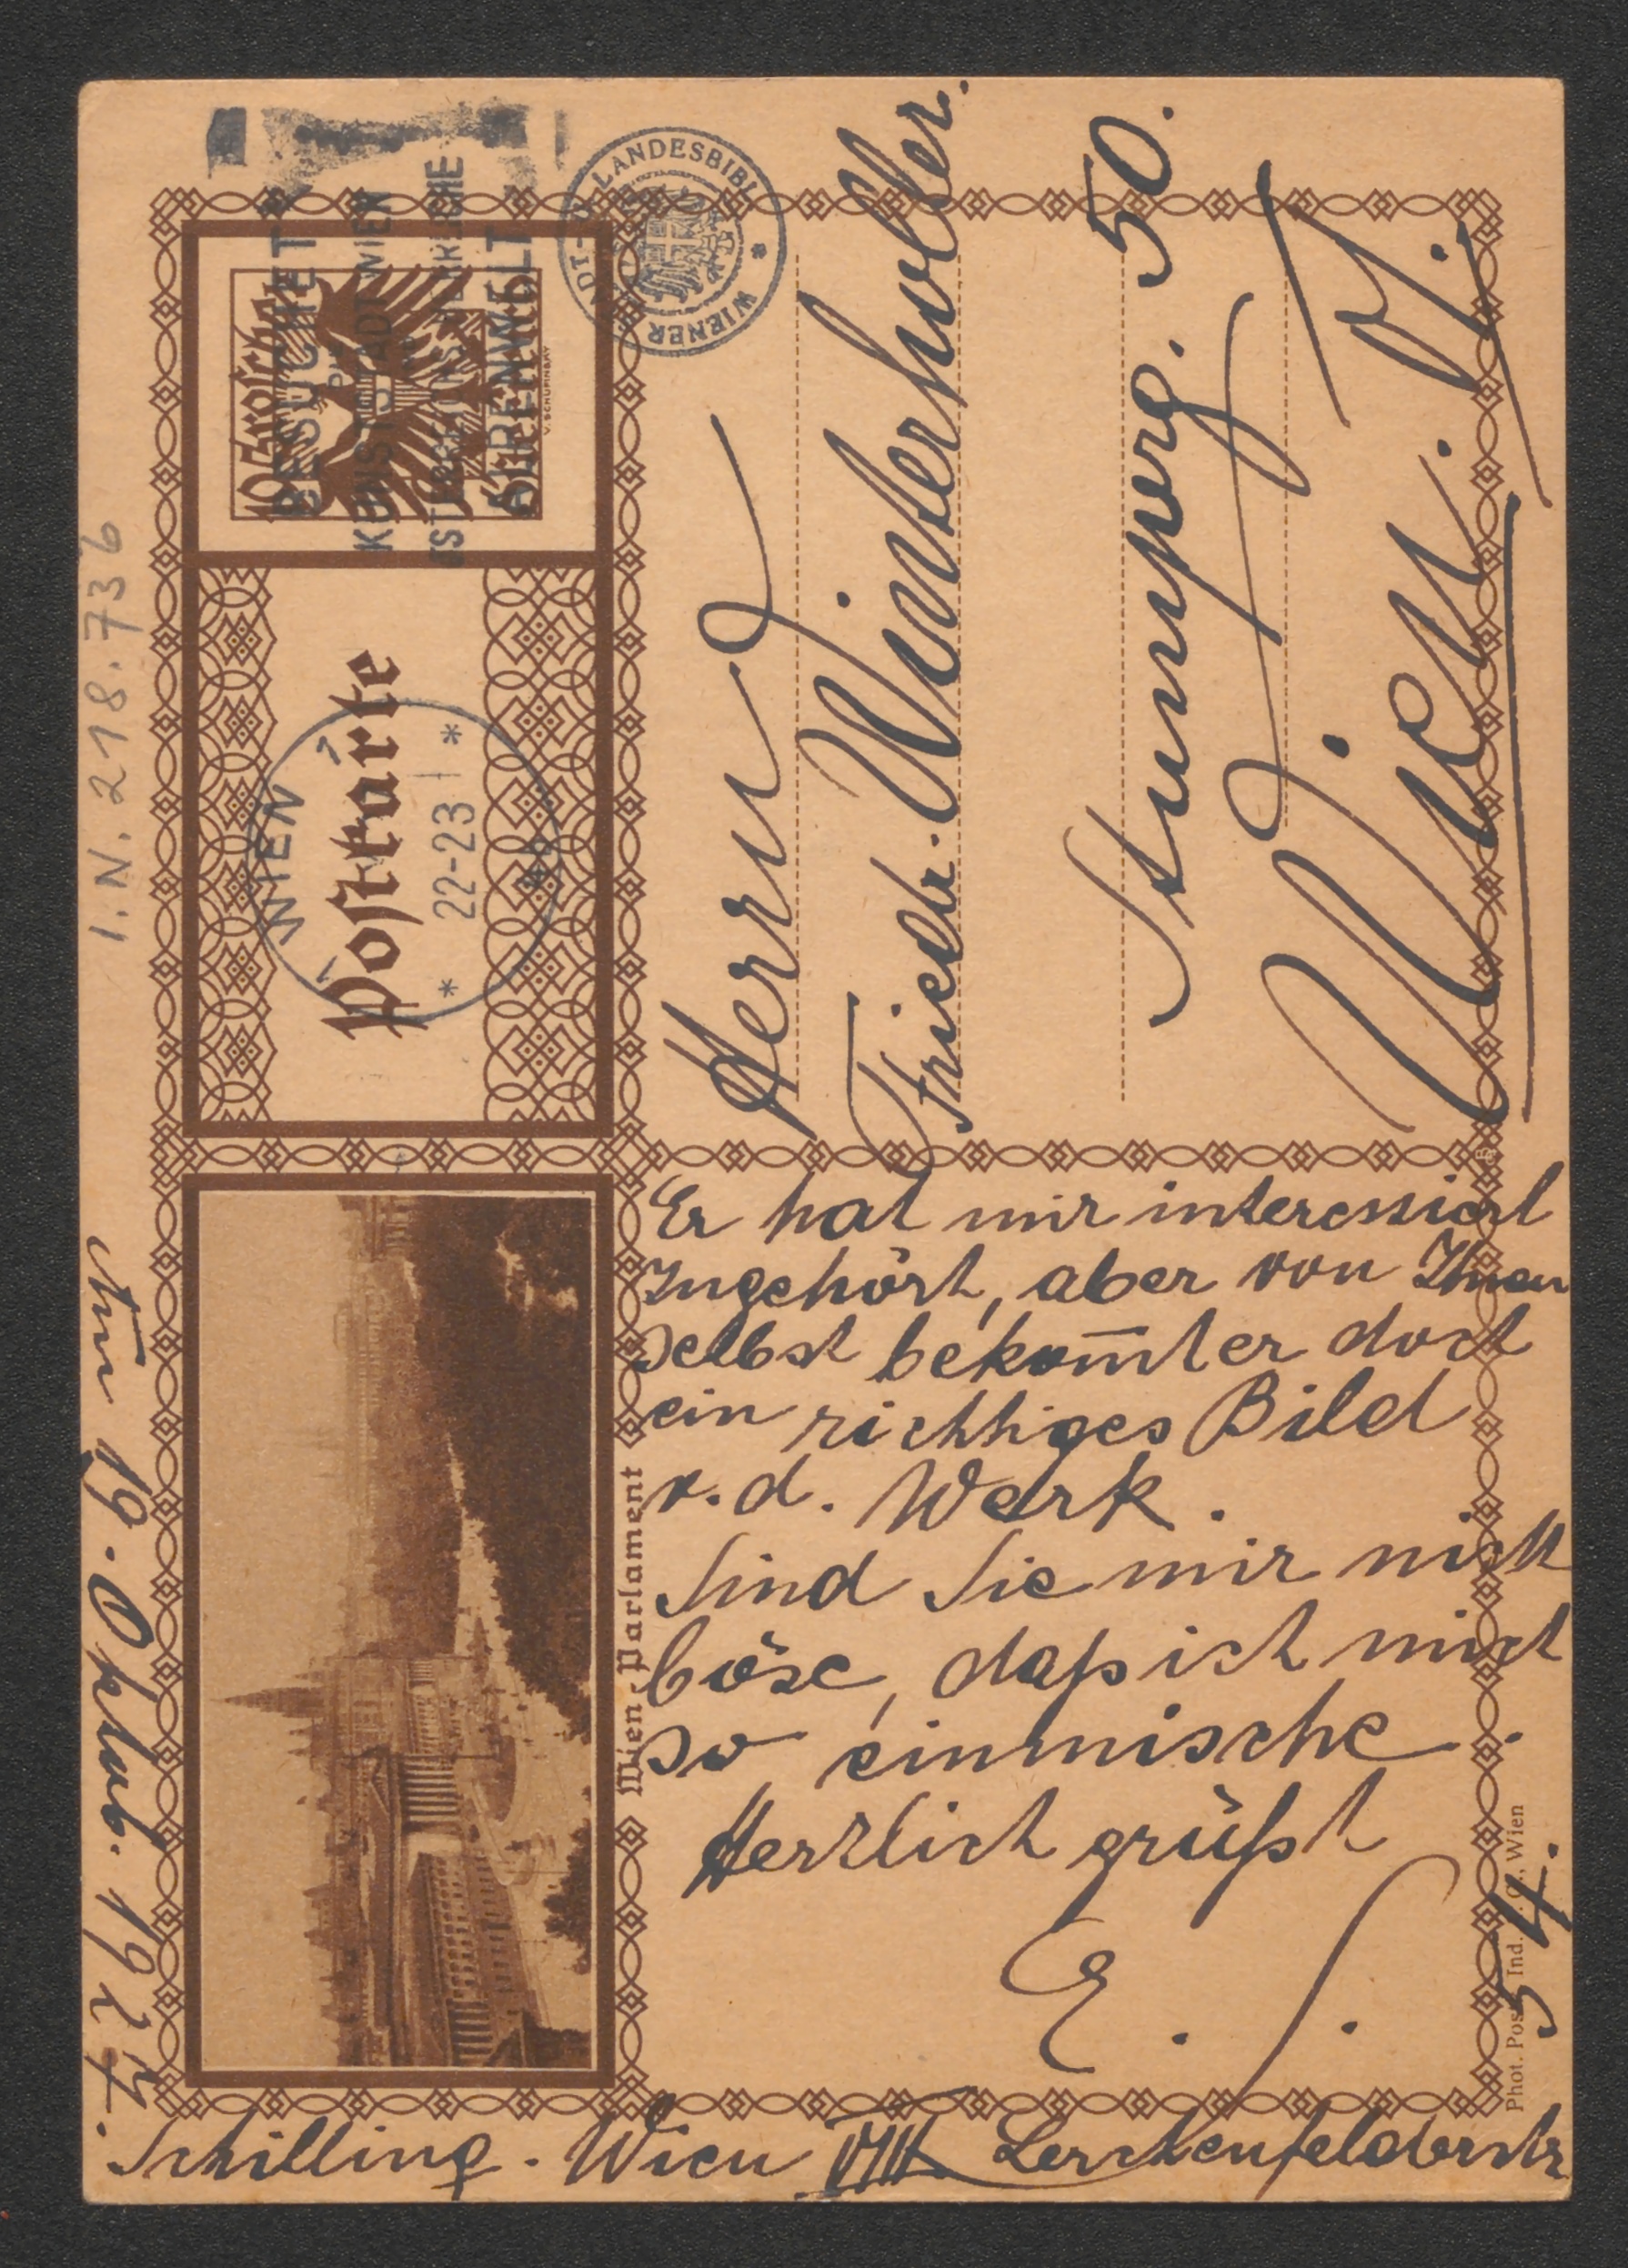 I. N. 218.736
10 Groschen
Österreich
V. SCHUFINSKY
BESUCHET
DIE
KUNSTSTADT WIEN
UND
ALPENWELT
Postkarte
WIEN
* 22-23 *
WIENER STADT- U. LANDESBIBL. *
Herrn
Friedr. Winterholler.
Stumperg. 50.
Wien. VI.
Wien, Parlament
Er hat mir interessiert
zugehört, aber von Ihnen
selbst bekom̅t er doch
ein richtiges Bild
v. d. Werk.
Sind Sie mir nicht
böse, daß ich mich
so einmische.
Herzlich grüßt
E. S.
Am 19. Oktob. 1927.
Schilling. Wien VIII. Lerchenfelderstr
54.
Phot. Post Ind. Wien